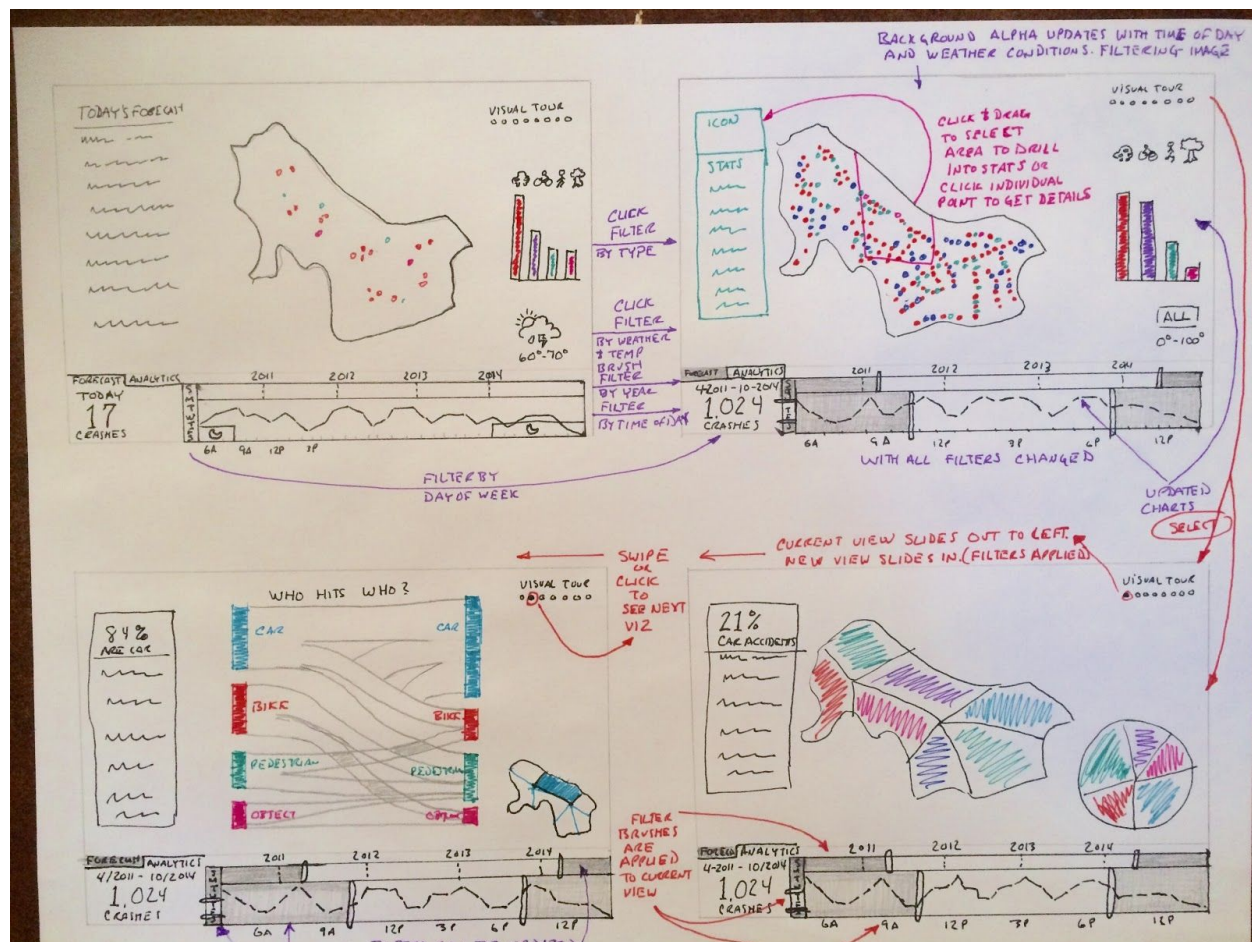 BACKGROUND ALPHA UPDATES WITH TIME OF DAY
AND WEATHER CONDITIONS. FILTERING IMAGE
TODAY'S FORECAST
VISUAL TOUR
60°-70°
FORECAST ANALYTICS
TODAY
17
CRASHES
2011 2012 2013 2014
6A 9A 12P 3P
CLICK
FILTER
BY TYPE
CLICK
FILTER
BY WEATHER
& TEMP
BRUSH
FILTER
BY YEAR
FILTER
BY TIME OF DAY
FILTER BY
DAY OF WEEK
ICON
STATS
CLICK & DRAG
TO SELECT
AREA TO DRILL
INTO STATS OR
CLICK INDIVIDUAL
POINT TO GET DETAILS
VISUAL TOUR
ALL
0°-100°
FORECAST ANALYTICS
4-2011-10-2014
1,024
CRASHES
2011 2012 2013 2014
6A 9A 12P 3P 6P 12P
WITH ALL FILTERS CHANGED
UPDATED
CHARTS
SELECT
CURRENT VIEW SLIDES OUT TO LEFT.
NEW VIEW SLIDES IN. (FILTERS APPLIED)
SWIPE
OR
CLICK
TO
SEE NEXT
VIZ
WHO HITS WHO?
VISUAL TOUR
84%
ARE CAR
CAR CAR
BIKE BIKE
PEDESTRIAN
OBJECT
FORECAST ANALYTICS
4/2011 - 10/2014
1,024
CRASHES
2011 2012 2013 2014
6A 9A 12P 3P 6P 12P
FILTER
BRUSHES
ARE
APPLIED
TO CURRENT
VIEW
VISUAL TOUR
21%
CAR ACCIDENTS
ANALYTICS
4-2011 - 10/2014
1,024
CRASHES
2011 2012 2013 2014
6A 9A 12P 3P 6P 12P